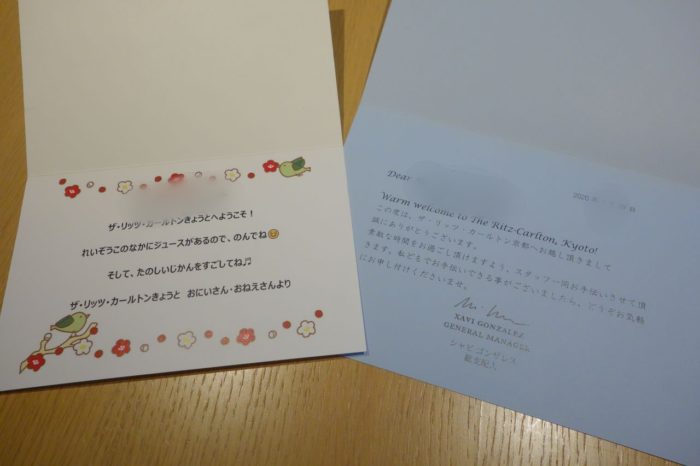 ザ・リッツ・カールトンきょうとへようこそ！
れいぞうこのなかにジュースがあるので、のんでね😊
そして、たのしいじかんをすごしてね♫
ザ・リッツ・カールトンきょうと　おにいさん・おねえさんより
Dear
2020
Warm welcome to The Ritz-Carlton, Kyoto!
この度は、ザ・リッツ・カールトン京都へお越し頂きまして
誠にありがとうございます。
素敵な時間をお過ごし頂けますよう、スタッフ一同お手伝いさせて頂
きます。私どもでお手伝いできる事がございましたら、どうぞお気軽
にお申し付けくださいませ。
XAVI GONZALEZ
GENERAL MANAGER
シャビ ゴンザレス
総支配人